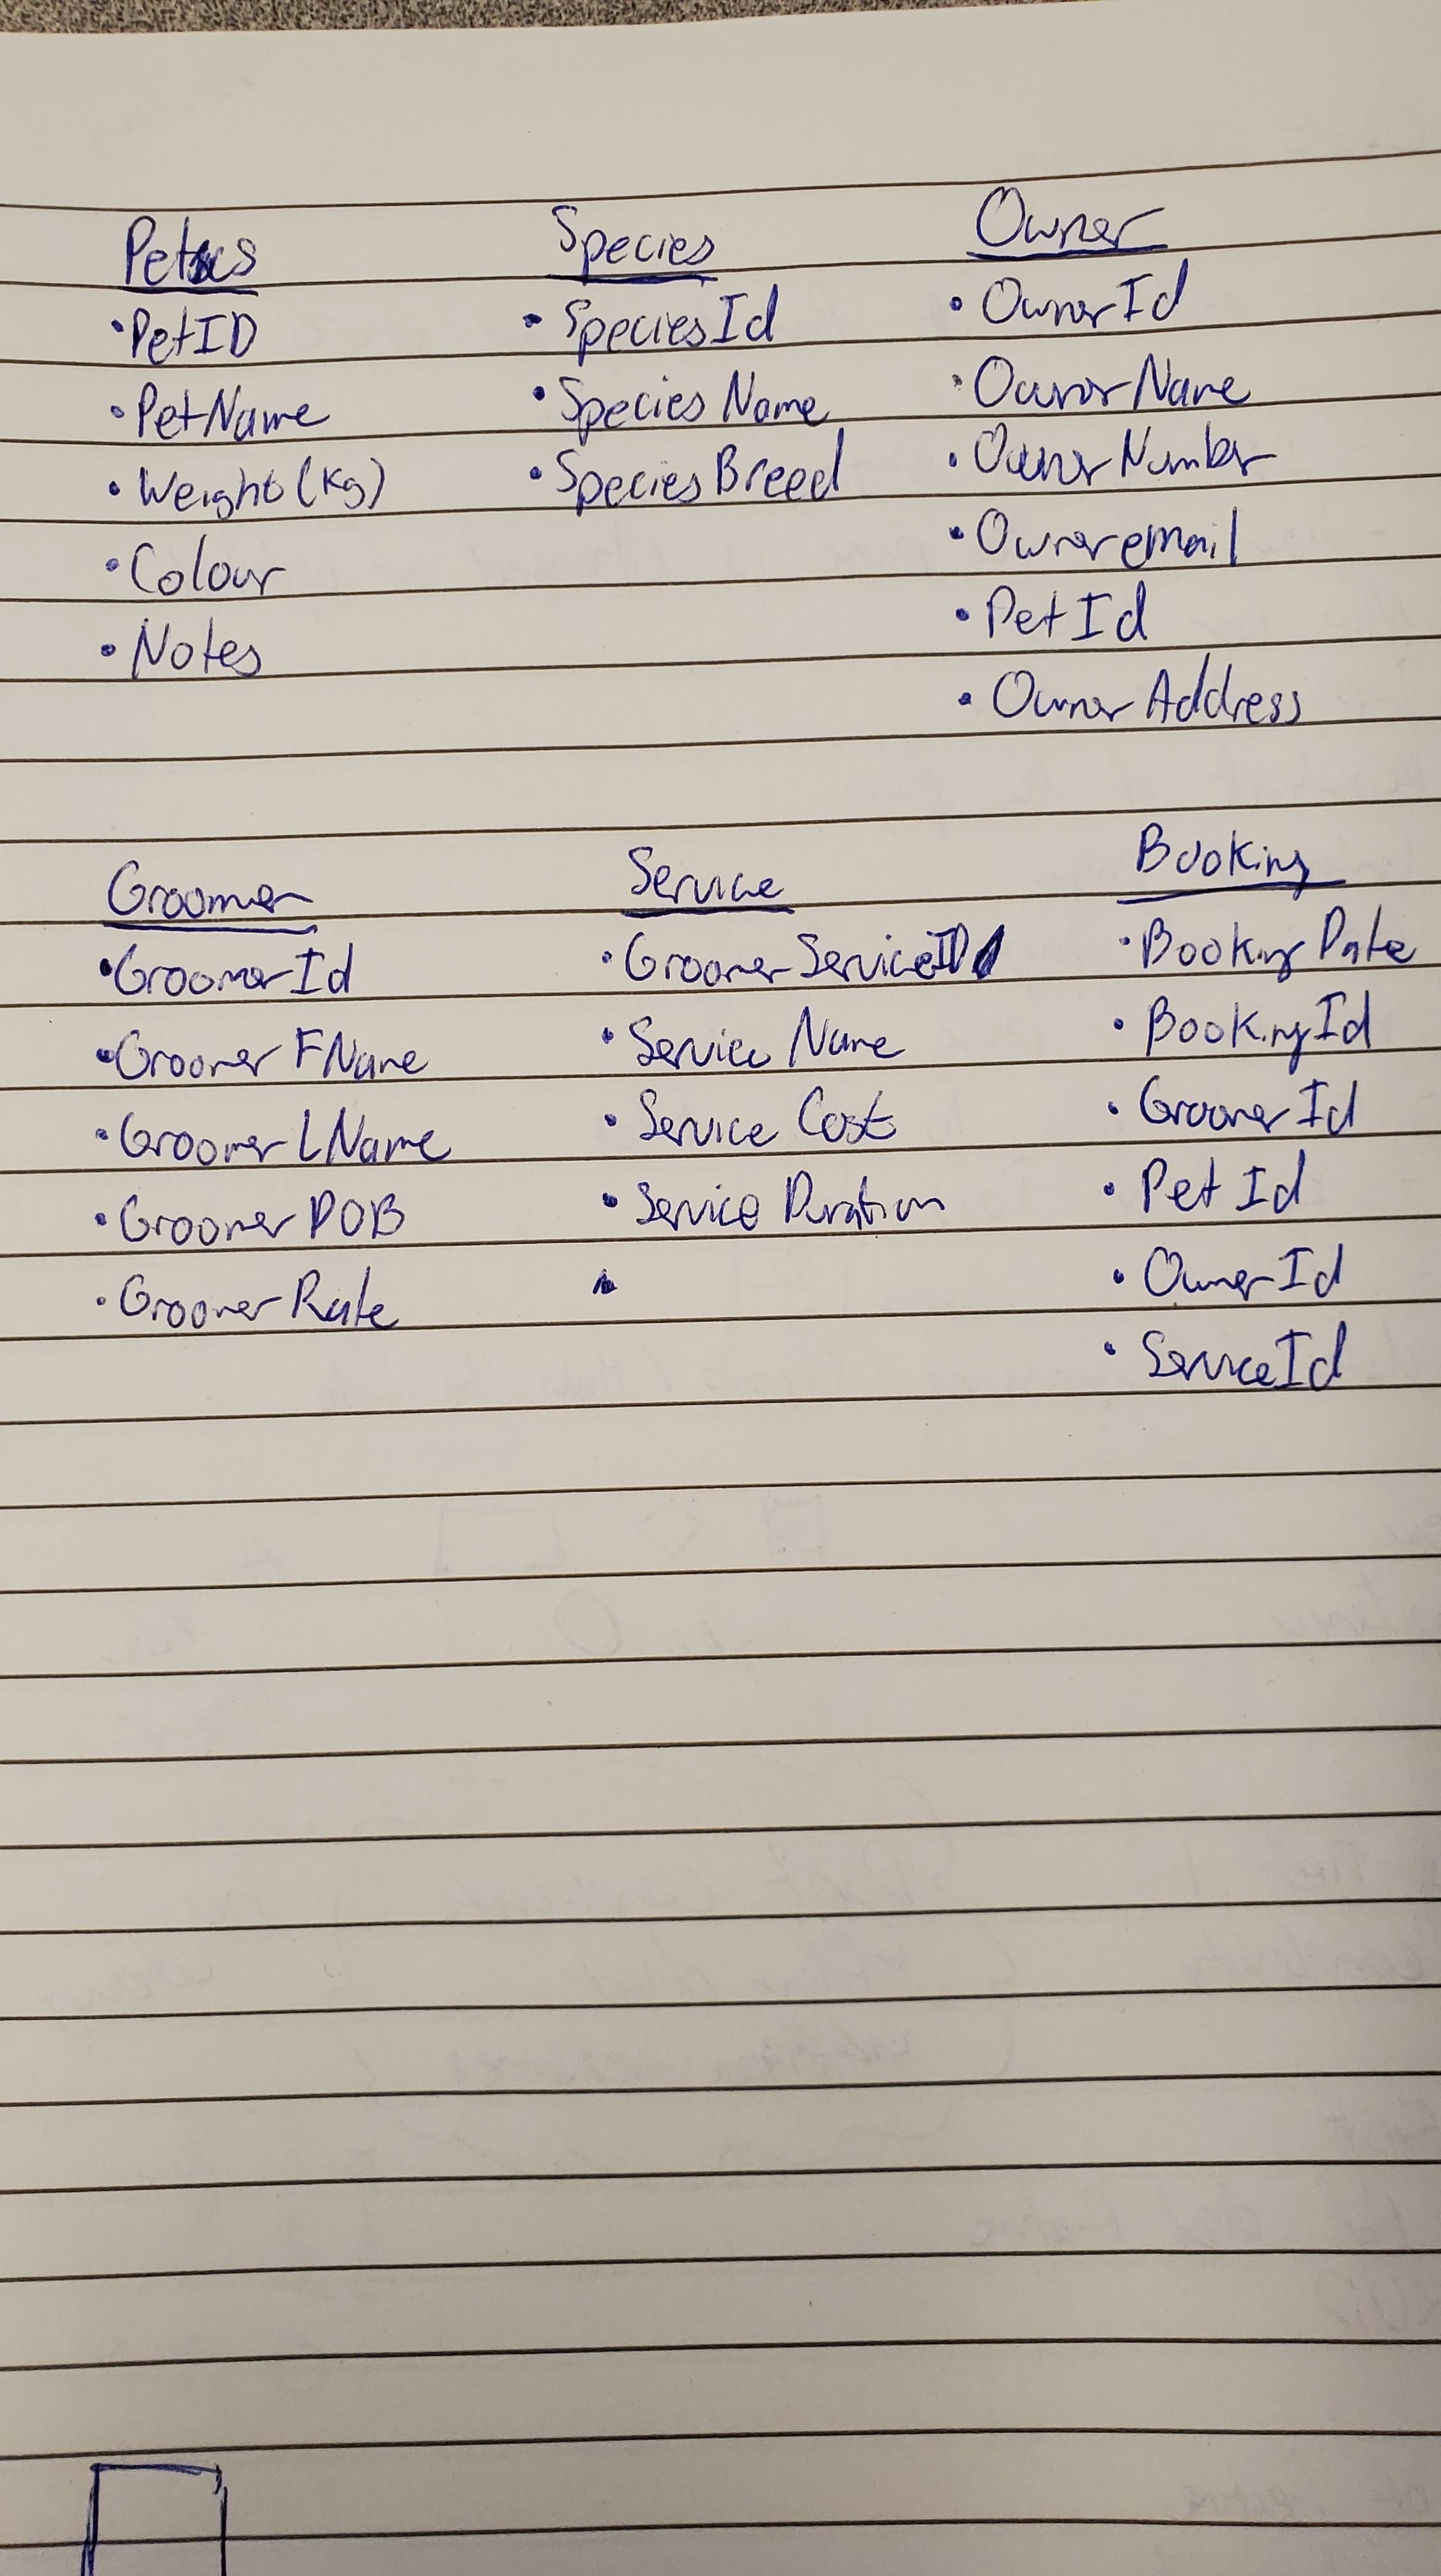 Pets
• PetID
• PetName
• Weight (Kg)
• Colour
• Notes
Species
• SpeciesId
• Species Name
• Species Breed
Owner
• OwnerId
• OwnerName
• OwnerNumber
• Owneremail
• PetId
• Owner Address
Groomer
• GroomerId
• Groomer FName
• Groomer LName
• Groomer DOB
• Groomer Rate
Service
• Groomer ServiceID
• Service Name
• Service Cost
• Service Duration
Booking
• Booking Date
• BookingId
• GroomerId
• Pet Id
• OwnerId
• ServiceId